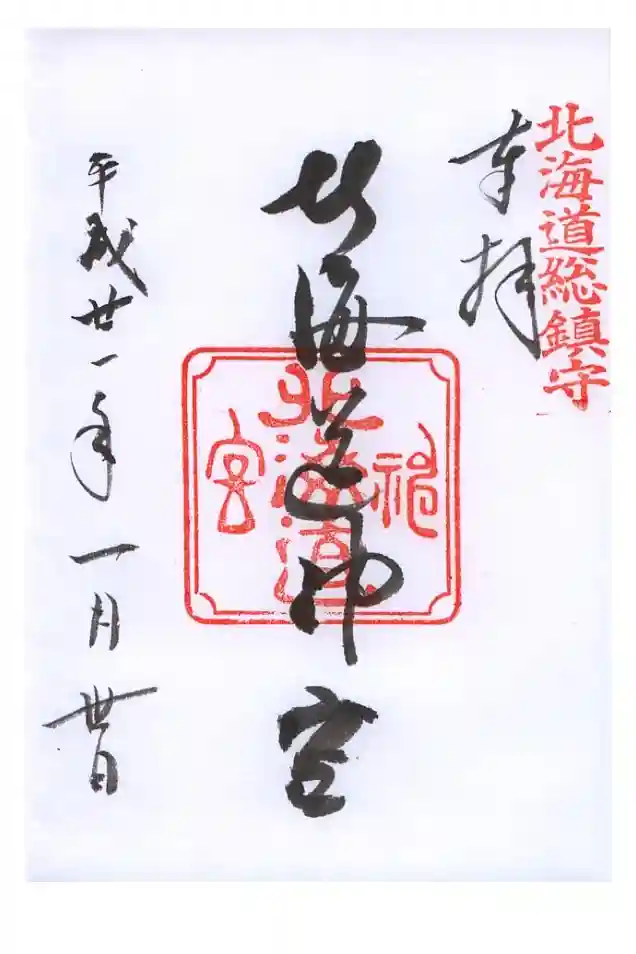 北海道総鎮守
奉拝
北海道神宮
北海道
神
宮
平成廿一年一月卅日